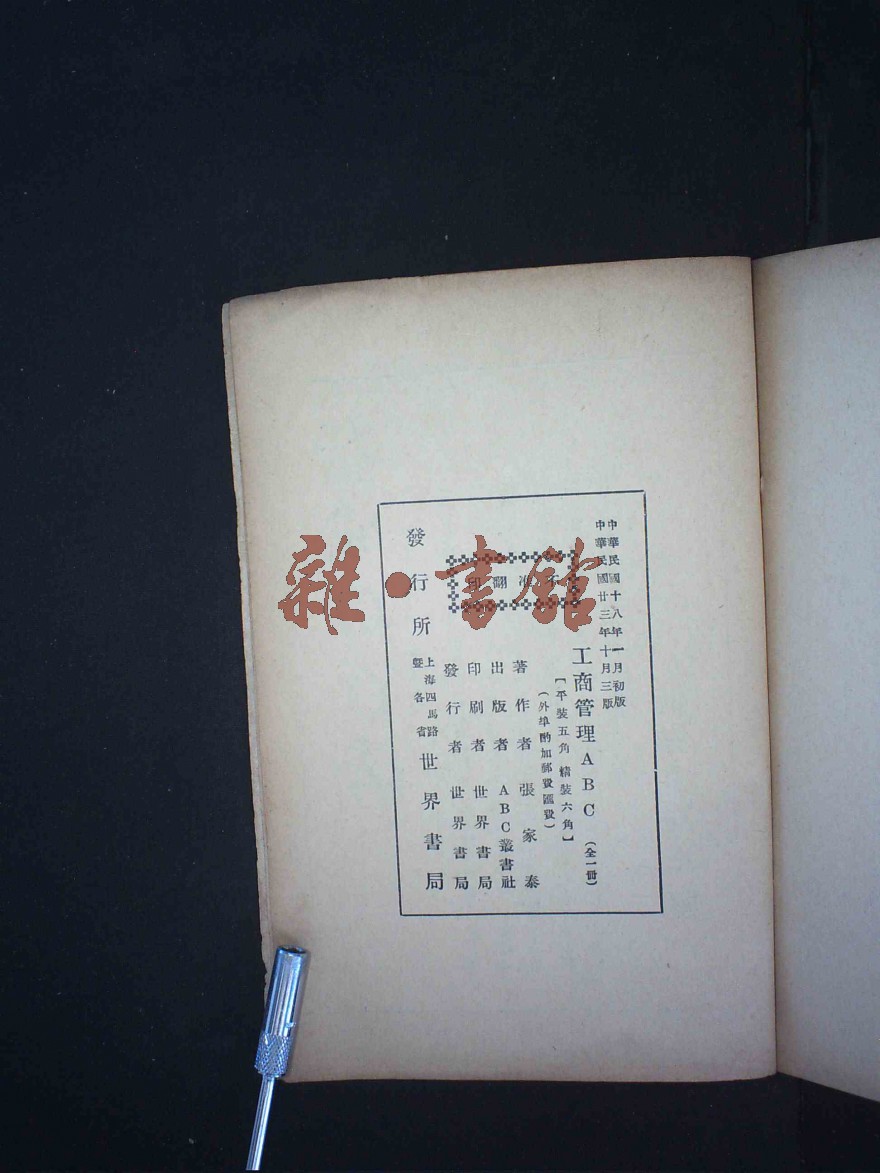 中華民國十八年一月初版
中華民國廿三年十月三版
工商管理ABC（全一冊）
【平裝五角 精裝六角】
（外埠酌加郵費匯費）
不准翻印
著作者 張家泰
出版者 ABC叢書社
印刷者 世界書局
發行者 世界書局
發行所 上海四馬路暨各省 世界書局
雜·書館